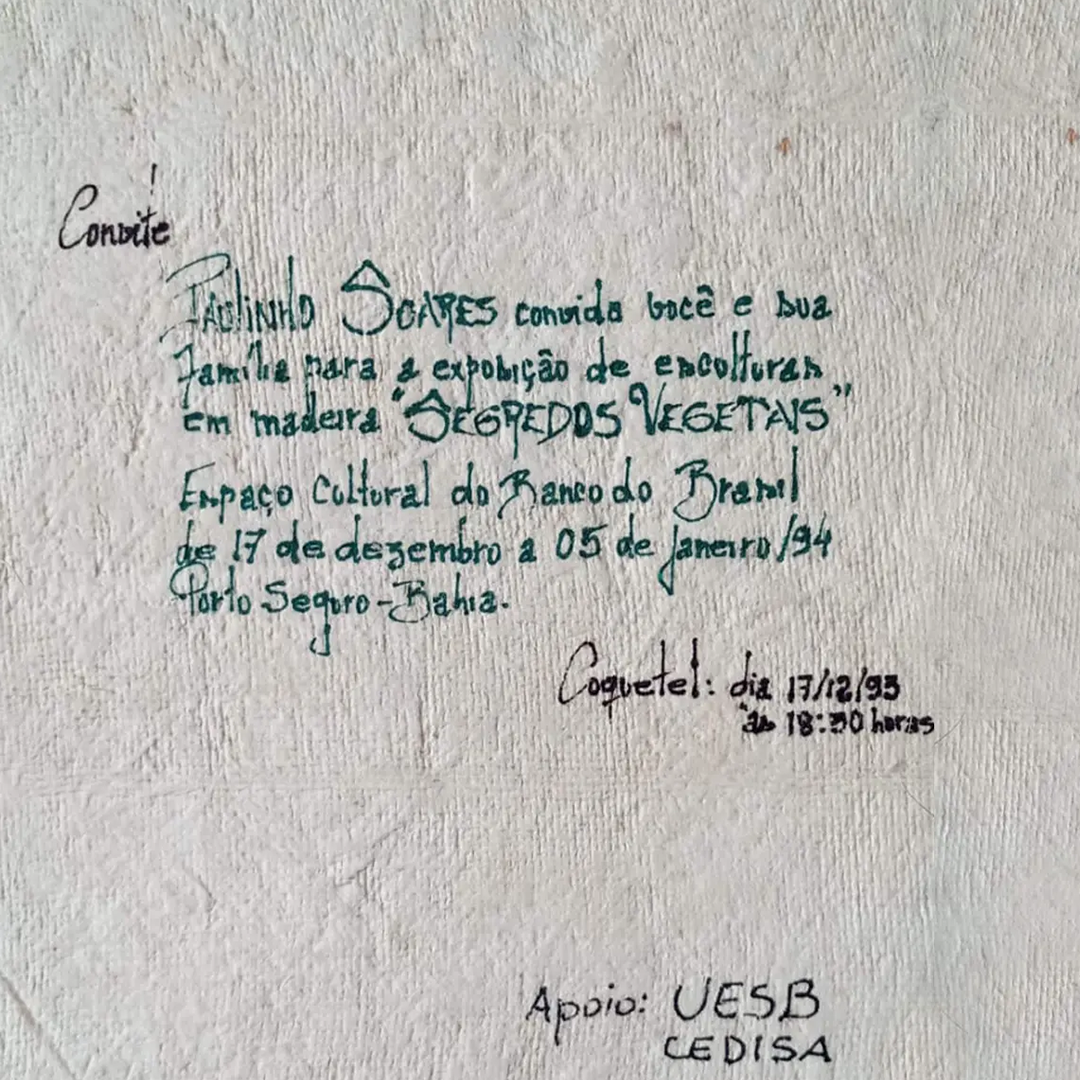 Convite
PAULINHO SOARES convida você e sua
família para a exposição de escolturas
em madeira "SEGREDOS VEGETAIS"
Espaço Cultural do Banco do Brasil
de 17 de dezembro a 05 de Janeiro/94
Porto Seguro-Bahia.
Coquetel: dia 17/12/93
às 18:30 horas
Apoio: UESB
CEDISA